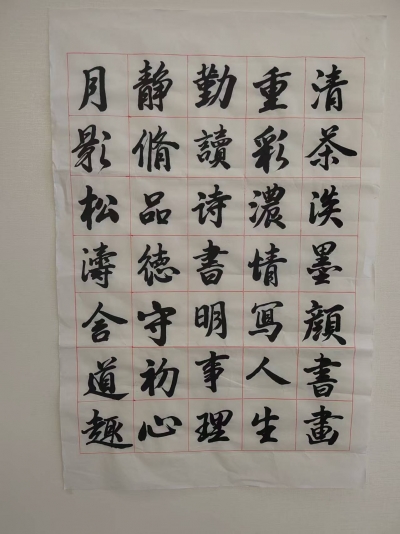 清茶淡墨顔書畫
重彩濃情寫人生
勤讀诗書明事理
静脩品徳守初心
月影松濤含道趣